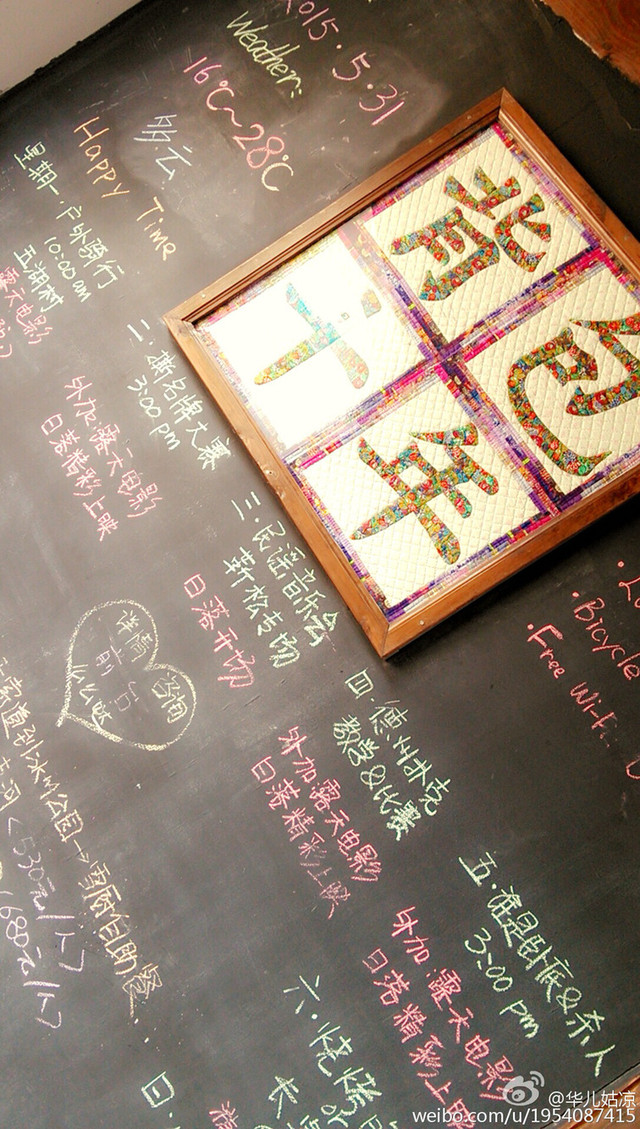 2015.5.31
Weather:
16℃~28℃
多云
Happy Time
星期一.户外骑行
10:00 am
五湖村
露天电影
二.撕名牌大赛
3:00 pm
外加露天电影
日落精彩上映
三.民谣音乐会
靳松专场
日落开场
四.德州扑克
教学&比赛
外加露天电影
日落精彩上映
五.谁是卧底&杀人
3:00 pm
外加.露天电影
日落精彩上映
六.烧烤
or
日.
详简
咨询
前台
么么哒
索道到冰川公园→雪厨自助餐...
<530元/人>
680元/人>
背包
十年
Bicycle
Free Wi-Fi
@华儿姑凉
weibo.com/u/1954087415